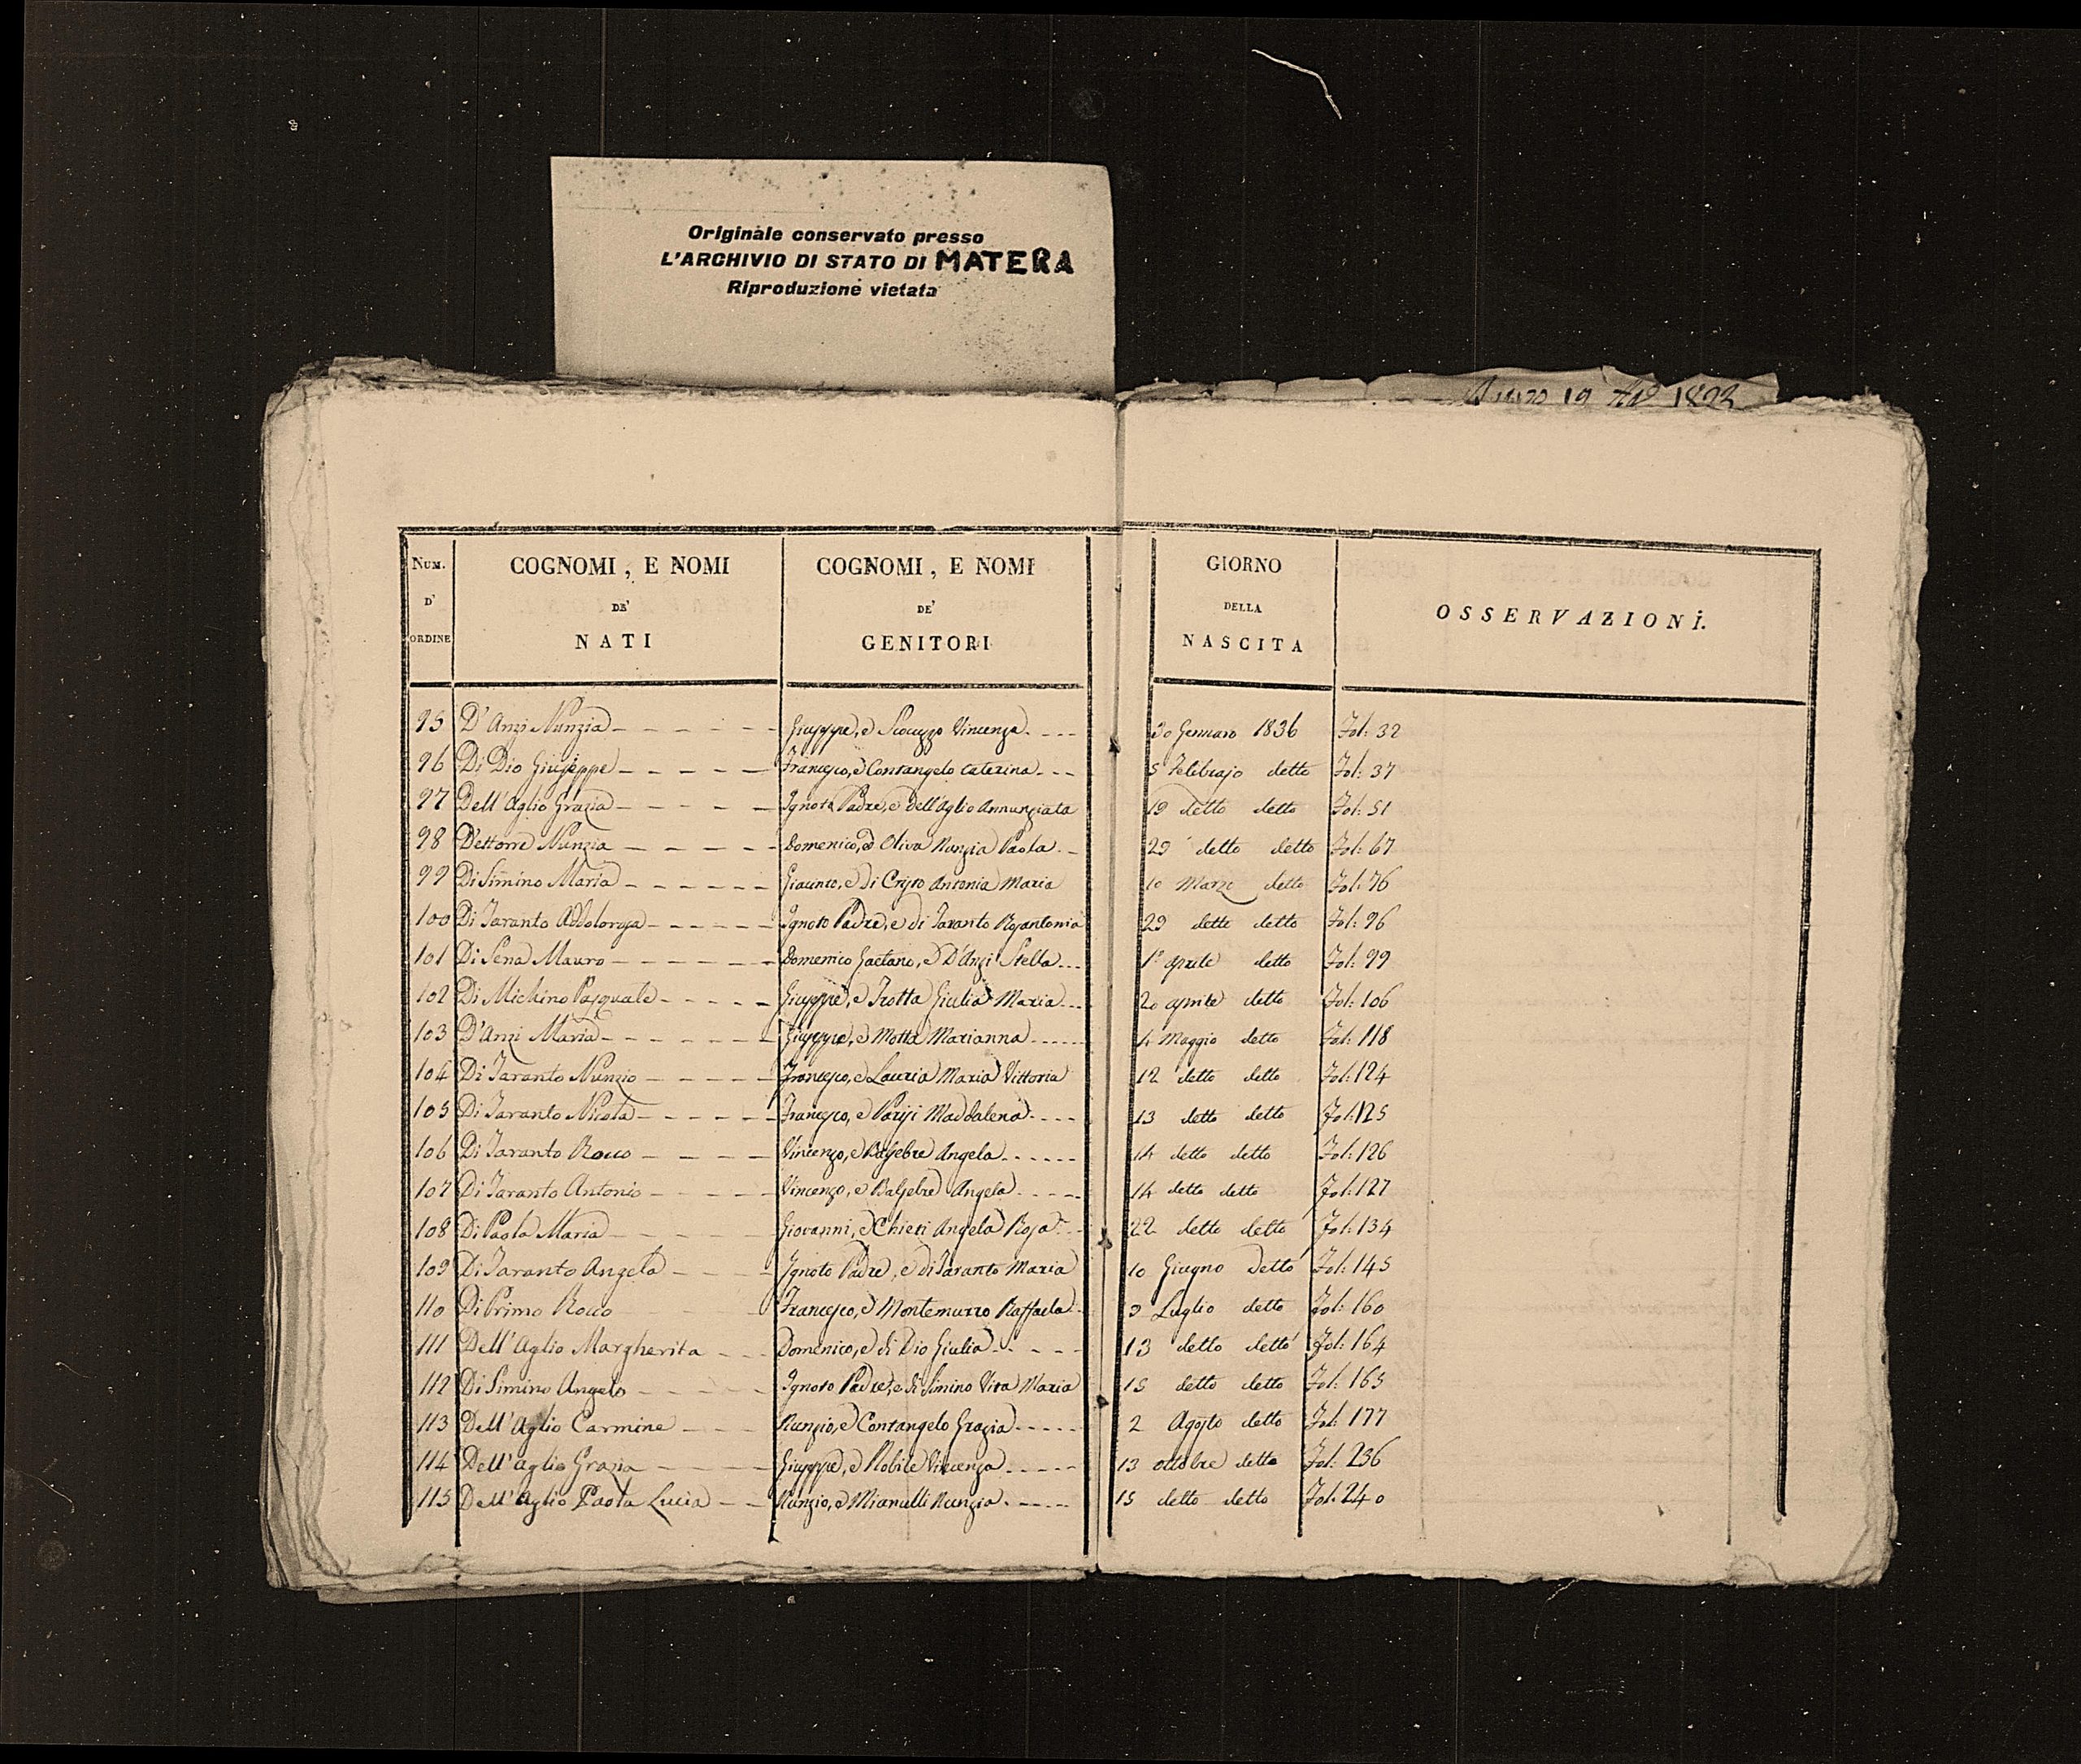 Originale conservato presso
L'ARCHIVIO DI STATO DI MATERA
Riproduzione vietata
19 1892
NUM. D' ORDINE
COGNOMI, E NOMI DE' NATI
COGNOMI, E NOMI DE' GENITORI
GIORNO DELLA NASCITA
OSSERVAZIONI.
95 D'Anzi Nunzia Giuseppe, e Scocuzzo Vincenza 30 Gennaro 1836 Fol: 32
96 Di Dio Giuseppe Francesco, e Contangelo Caterina 5 Febbrajo detto Fol: 37
97 Dell'Aglio Grazia Ignoto Padre, e dell'Aglio Annunziata 19 detto detto Fol: 51
98 D'ettorre Nunzia Domenico, ed Oliva Nunzia Paola 29 detto detto Fol: 67
99 Di Simino Maria Giacinto, e di Cristo Antonia Maria 10 Marzo detto Fol: 76
100 Di Taranto Addolorata Ignoto Padre, e di Taranto Rosantonia 29 detto detto Fol: 96
101 Di Sena Mauro Domenico Gaetano, e D'Anzi Stella 1° aprile detto Fol: 99
102 Di Michino Pasquale Giuseppe, e Trotta Giulia Maria 20 aprile detto Fol: 106
103 D'Anzi Maria Giuseppe, e Motta Marianna Maggio detto Fol: 118
104 Di Taranto Nunzio Francesco, e Lauria Maria Vittoria 12 detto detto Fol: 124
105 Di Taranto Nicola Francesco, e Parisi Maddalena 13 detto detto Fol: 125
106 Di Taranto Rocco Vincenzo, e Balsebre Angela 14 detto detto Fol: 126
107 Di Taranto Antonio Vincenzo, e Balsebre Angela 14 detto detto Fol: 127
108 Di Paola Maria Giovanni, e Chieti Angela Rosa 22 detto detto Fol: 134
109 Di Taranto Angela Ignoto Padre, e di Taranto Maria 10 Giugno detto Fol: 145
110 Di Primo Rocco Francesco, e Montemurro Raffaela 9 Luglio detto Fol: 160
111 Dell'Aglio Margherita Domenico, e di Dio Giulia 13 detto detto Fol: 164
112 Di Simino Angelo Ignoto Padre, e di Simino Vita Maria 15 detto detto Fol: 165
113 Dell'Aglio Carmine Nunzio, e Contangelo Grazia 2 Agosto detto Fol: 177
114 Dell'Aglio Grazia Giuseppe, e Nobile Vincenza 13 ottobre detto Fol: 236
115 Dell'Aglio Paola Lucia Nunzio, e Mianulli Nunzia 15 detto detto Fol: 240